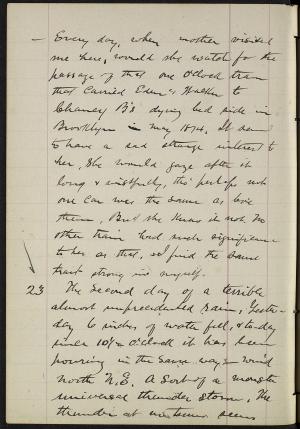 — Every day, when mother visited
me here, would she watch for the
passage of that one o'clock train
that carried Eden & Walker to
Chancy B's dying bed side in
Brooklyn in May 1874. It seemed
to have a sad strange interest to
her. She would gaze after it
long & wistfully, tho' perhaps not
one car was the same as bore
them, But she knew it not. No
other train had such significance
to her as that, & I find the same
trait strong in myself.
23 The second day of a terrible
almost unprecedented rain; Yester-
day 6 inches of water fell, & to-day
since 10½ o'clock it has been
pouring in the same way, wind
north N.E. A sort of a monster
universal thunder storm. The
thunder at no time seems